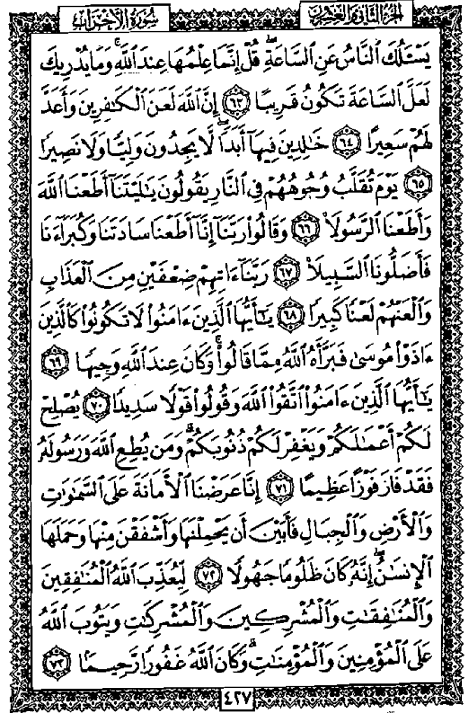 الجزء الثاني والعشرون
سورة الأحزاب
يَسْـَٔلُكَ ٱلنَّاسُ عَنِ ٱلسَّاعَةِ ۖ قُلْ إِنَّمَا عِلْمُهَا عِندَ ٱللَّهِ ۚ وَمَا يُدْرِيكَ
لَعَلَّ ٱلسَّاعَةَ تَكُونُ قَرِيبًا ٦٣ إِنَّ ٱللَّهَ لَعَنَ ٱلْكَـٰفِرِينَ وَأَعَدَّ
لَهُمْ سَعِيرًا ٦٤ خَـٰلِدِينَ فِيهَآ أَبَدًا ۖ لَّا يَجِدُونَ وَلِيًّا وَلَا نَصِيرًا
٦٥ يَوْمَ تُقَلَّبُ وُجُوهُهُمْ فِى ٱلنَّارِ يَقُولُونَ يَـٰلَيْتَنَآ أَطَعْنَا ٱللَّهَ
وَأَطَعْنَا ٱلرَّسُولَا۠ ٦٦ وَقَالُوا۟ رَبَّنَآ إِنَّآ أَطَعْنَا سَادَتَنَا وَكُبَرَآءَنَا
فَأَضَلُّونَا ٱلسَّبِيلَا۠ ٦٧ رَبَّنَآ ءَاتِهِمْ ضِعْفَيْنِ مِنَ ٱلْعَذَابِ
وَٱلْعَنْهُمْ لَعْنًا كَبِيرًا ٦٨ يَـٰٓأَيُّهَا ٱلَّذِينَ ءَامَنُوا۟ لَا تَكُونُوا۟ كَٱلَّذِينَ
ءَاذَوْا۟ مُوسَىٰ فَبَرَّأَهُ ٱللَّهُ مِمَّا قَالُوا۟ ۚ وَكَانَ عِندَ ٱللَّهِ وَجِيهًا ٦٩
يَـٰٓأَيُّهَا ٱلَّذِينَ ءَامَنُوا۟ ٱتَّقُوا۟ ٱللَّهَ وَقُولُوا۟ قَوْلًا سَدِيدًا ٧٠ يُصْلِحْ
لَكُمْ أَعْمَـٰلَكُمْ وَيَغْفِرْ لَكُمْ ذُنُوبَكُمْ ۗ وَمَن يُطِعِ ٱللَّهَ وَرَسُولَهُۥ
فَقَدْ فَازَ فَوْزًا عَظِيمًا ٧١ إِنَّا عَرَضْنَا ٱلْأَمَانَةَ عَلَى ٱلسَّمَـٰوَٰتِ
وَٱلْأَرْضِ وَٱلْجِبَالِ فَأَبَيْنَ أَن يَحْمِلْنَهَا وَأَشْفَقْنَ مِنْهَا وَحَمَلَهَا
ٱلْإِنسَـٰنُ ۖ إِنَّهُۥ كَانَ ظَلُومًا جَهُولًا ٧٢ لِّيُعَذِّبَ ٱللَّهُ ٱلْمُنَـٰفِقِينَ
وَٱلْمُنَـٰفِقَـٰتِ وَٱلْمُشْرِكِينَ وَٱلْمُشْرِكَـٰتِ وَيَتُوبَ ٱللَّهُ
عَلَى ٱلْمُؤْمِنِينَ وَٱلْمُؤْمِنَـٰتِ ۗ وَكَانَ ٱللَّهُ غَفُورًا رَّحِيمًا ٧٣
٤٢٧